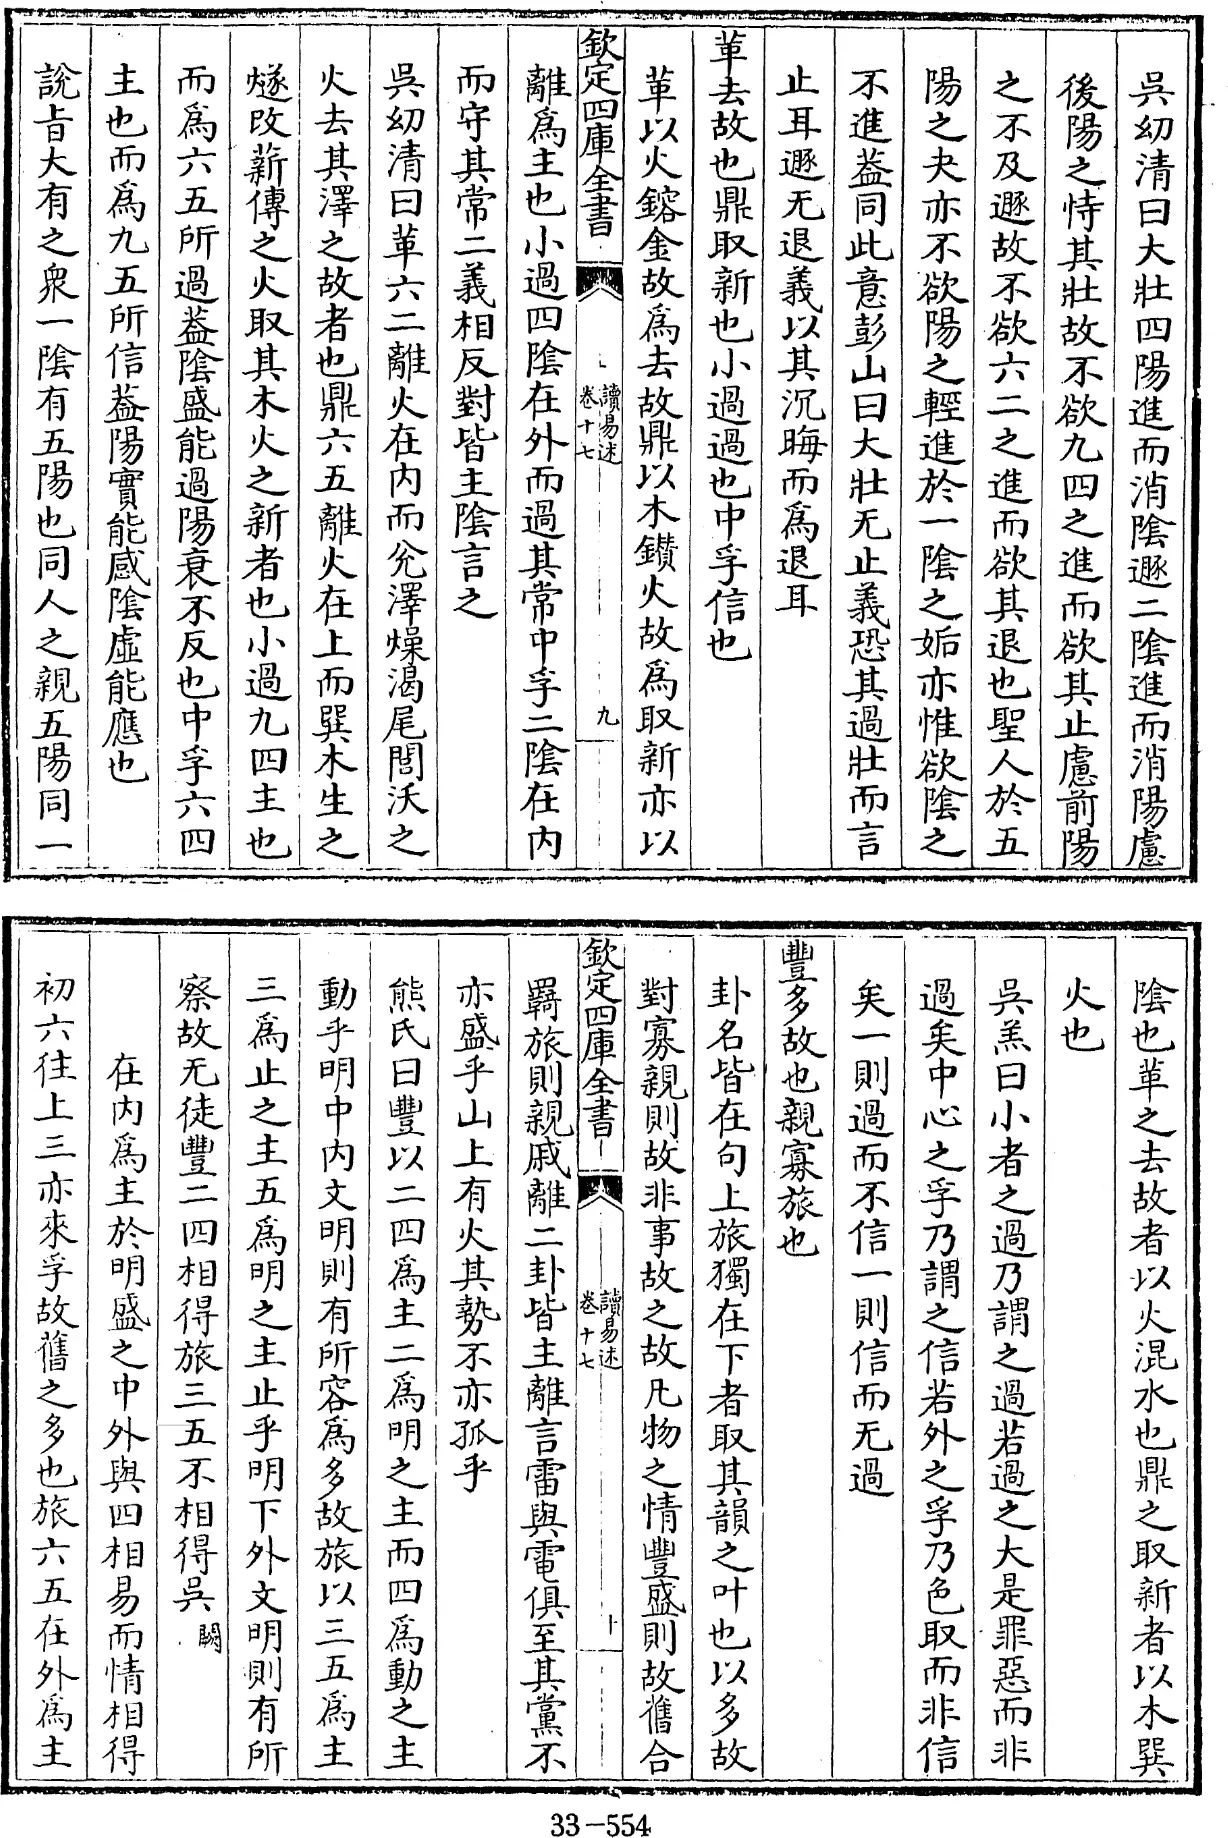 吳幼清曰大壯四陽進而消陰遯二陰進而消陽慮
後陽之恃其壯故不欲九四之進而欲其止慮前陽
之不及遯故不欲六二之進而欲其退也聖人於五
陽之夬亦不欲陽之輕進於一陰之姤亦惟欲陰之
不進葢同此意彭山曰大壯无止義恐其過壯而言
止耳遯无退義以其沉晦而爲退耳
革去故也鼎取新也小過過也中孚信也
革以火鎔金故爲去故鼎以木鑚火故爲取新亦以
欽定四庫全書
讀易述
卷十七
九
離爲主也小過四陰在外而過其常中孚二陰在内
而守其常二義相反對皆主陰言之
吳幼清曰革六二離火在内而兊澤燥渴尾閭沃之
火去其澤之故者也鼎六五離火在上而巽木生之
燧改薪傳之火取其木火之新者也小過九四主也
而爲六五所過葢陰盛能過陽衰不反也中孚六四
主也而爲九五所信葢陽實能感陰虛能應也
説旨大有之衆一陰有五陽也同人之親五陽同一
陰也革之去故者以火混水也鼎之取新者以木巽
火也
吳羔曰小者之過乃謂之過若過之大是罪惡而非
過矣中心之孚乃謂之信若外之孚乃色取而非信
矣一則過而不信一則信而无過
豐多故也親寡旅也
卦名皆在句上旅獨在下者取其韻之叶也以多故
對寡親則故非事故之故凡物之情豐盛則故舊合
欽定四庫全書
讀易述
卷十七
十
羇旅則親戚離二卦皆主離言雷與電俱至其黨不
亦盛乎山上有火其勢不亦孤乎
熊氏曰豐以二四爲主二爲明之主而四爲動之主
動乎明中内文明則有所容爲多故旅以三五爲主
三爲止之主五爲明之主止乎明下外文明則有所
察故无徒豐二四相得旅三五不相得吳闕
在内爲主於明盛之中外與四相易而情相得
初六往上三亦來孚故舊之多也旅六五在外爲主
33-554